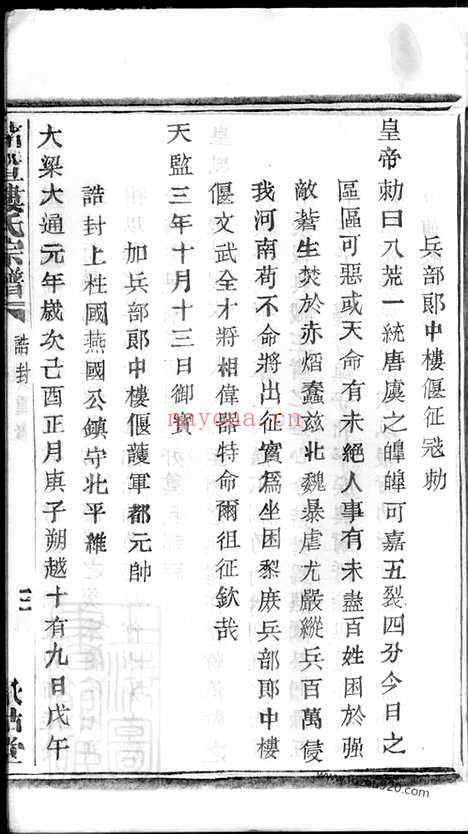 兵部郎中樓偃征寇勅
皇帝勅曰八荒一統唐虞之皥皥可嘉五裂四分今日之
區區可惡或天命有未絕人事有未盡百姓困於强
敵蒼生焚於赤熖蠢兹北魏暴虐尤嚴縱兵百萬侵
我河南苟不命將出征實爲坐困黎庻兵部郎中樓
偃文武全才將相偉器特命爾徂征欽哉
天監三年十月十三日御寳
加兵部郎中樓偃護軍都元帥
誥封上柱國燕國公鎮守北平維
大梁大通元年歲次己酉正月庚子朔越十有九日戊午
樓氏宗譜
誥封
重修
三
nayona.com